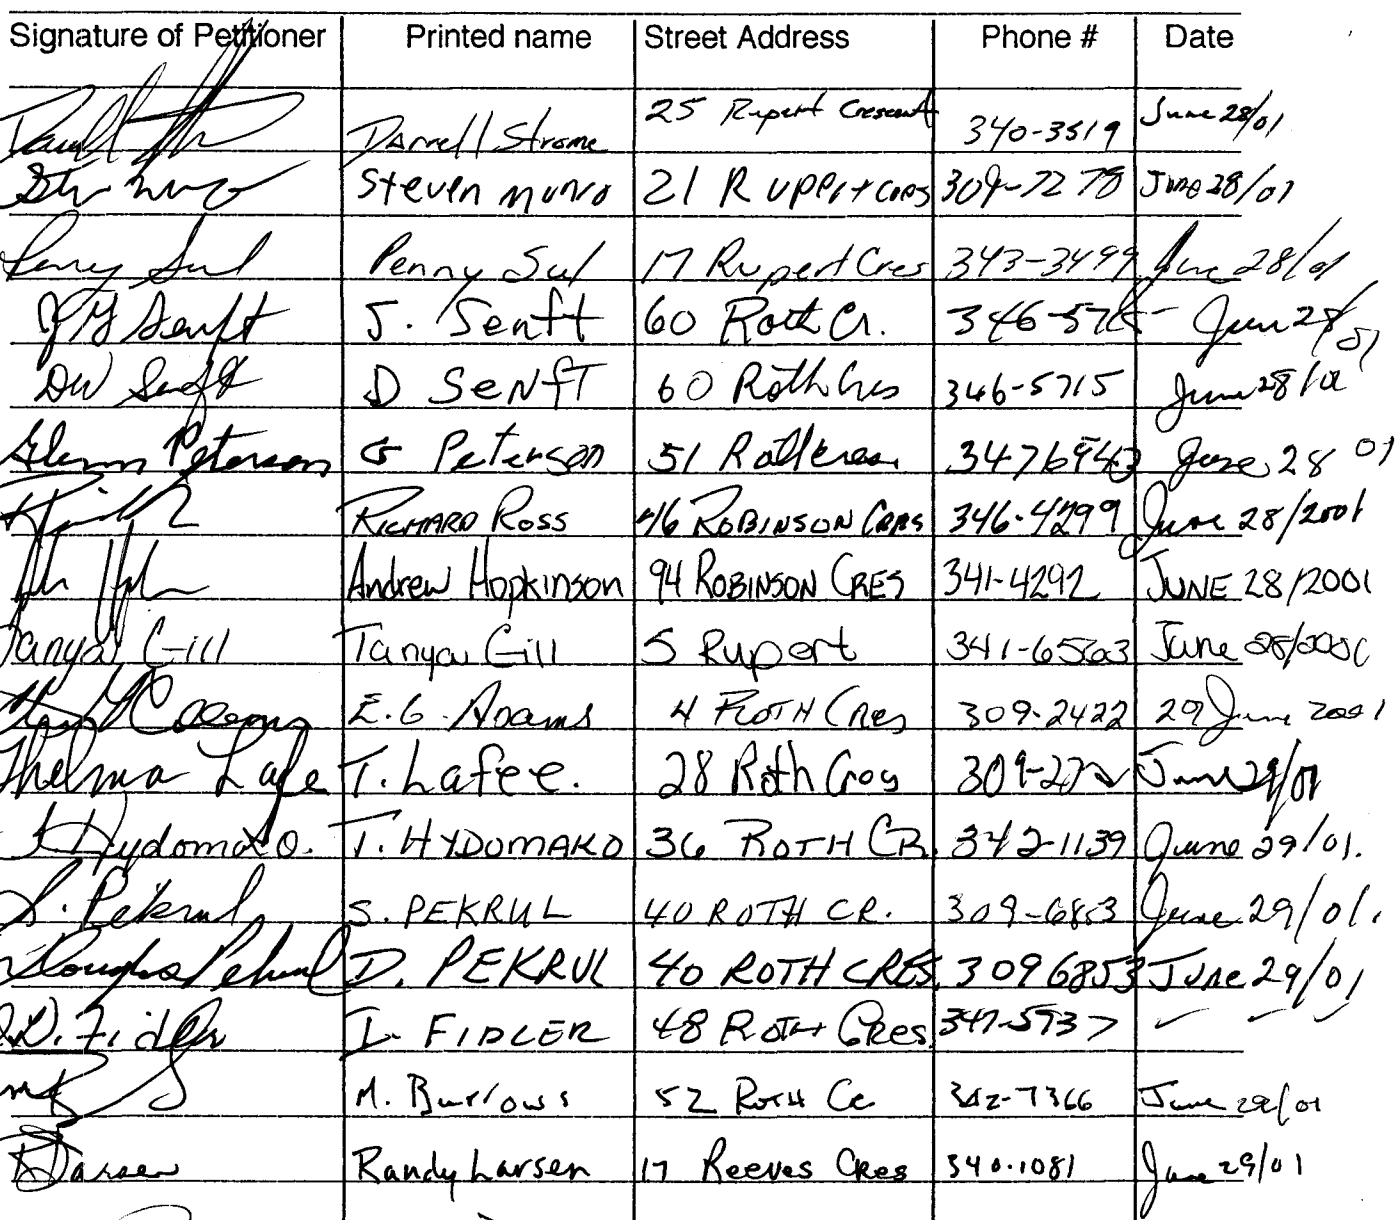 Signature of Petitioner Printed name Street Address Phone # Date
Darrell Strome 25 Rupert Crescent 340-3519 June 28/01
Steven Munro 21 Ruppert Cres 309-7278 June 28/01
Penny Sul 17 Rupert Cres 343-3499 June 28/01
J G Senft J. Senft 60 Roth Cr. 346-5715 June 28/01
DW Senft D Senft 60 Roth Cres 346-5715 June 28/01
Glenn Peterson G Peterson 51 Roth cres. 3476943 June 28 01
Richard Ross 46 Robinson Cres 346-4299 June 28/2001
Andrew Hopkinson 94 Robinson Cres 341-4292 June 28/2001
Tanya Gill Tanya Gill 5 Rupert 341-6563 June 28/2001
E.G. Adams 4 Roth Cres 309-2422 29 June 2001
Thelma Lafee T. Lafee. 28 Roth Cres June 29/01
T Hydomako. T. HYDOMAKO 36 ROTH CR. 342-1139 June 29/01.
S. Pekrul S. PEKRUL 40 ROTH CR. 309-6853 June 29/01.
Douglas Pekrul D. PEKRUL 40 ROTH CRES. 3096853 June 29/01
D. Fidler I. FIDLER 48 Roth Cres 347-5937
M. Burrows 52 Roth Cr 342-7366 June 29/01
R Larsen Randy Larsen 17 Reeves Cres 340-1081 June 29/01